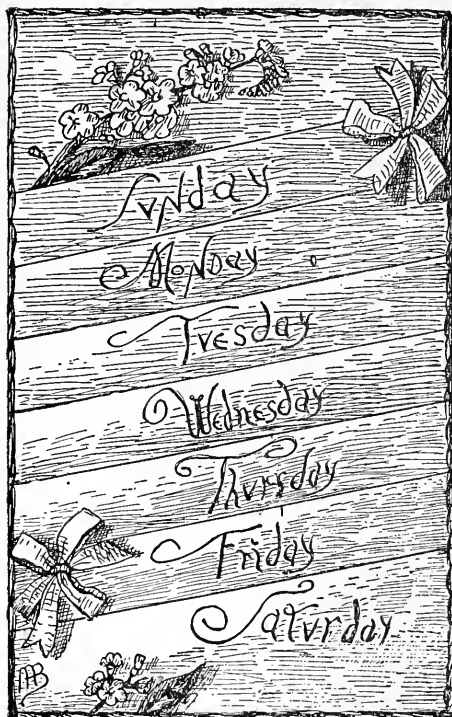 Sunday
Monday
Tuesday
Wednesday
Thursday
Friday
Saturday